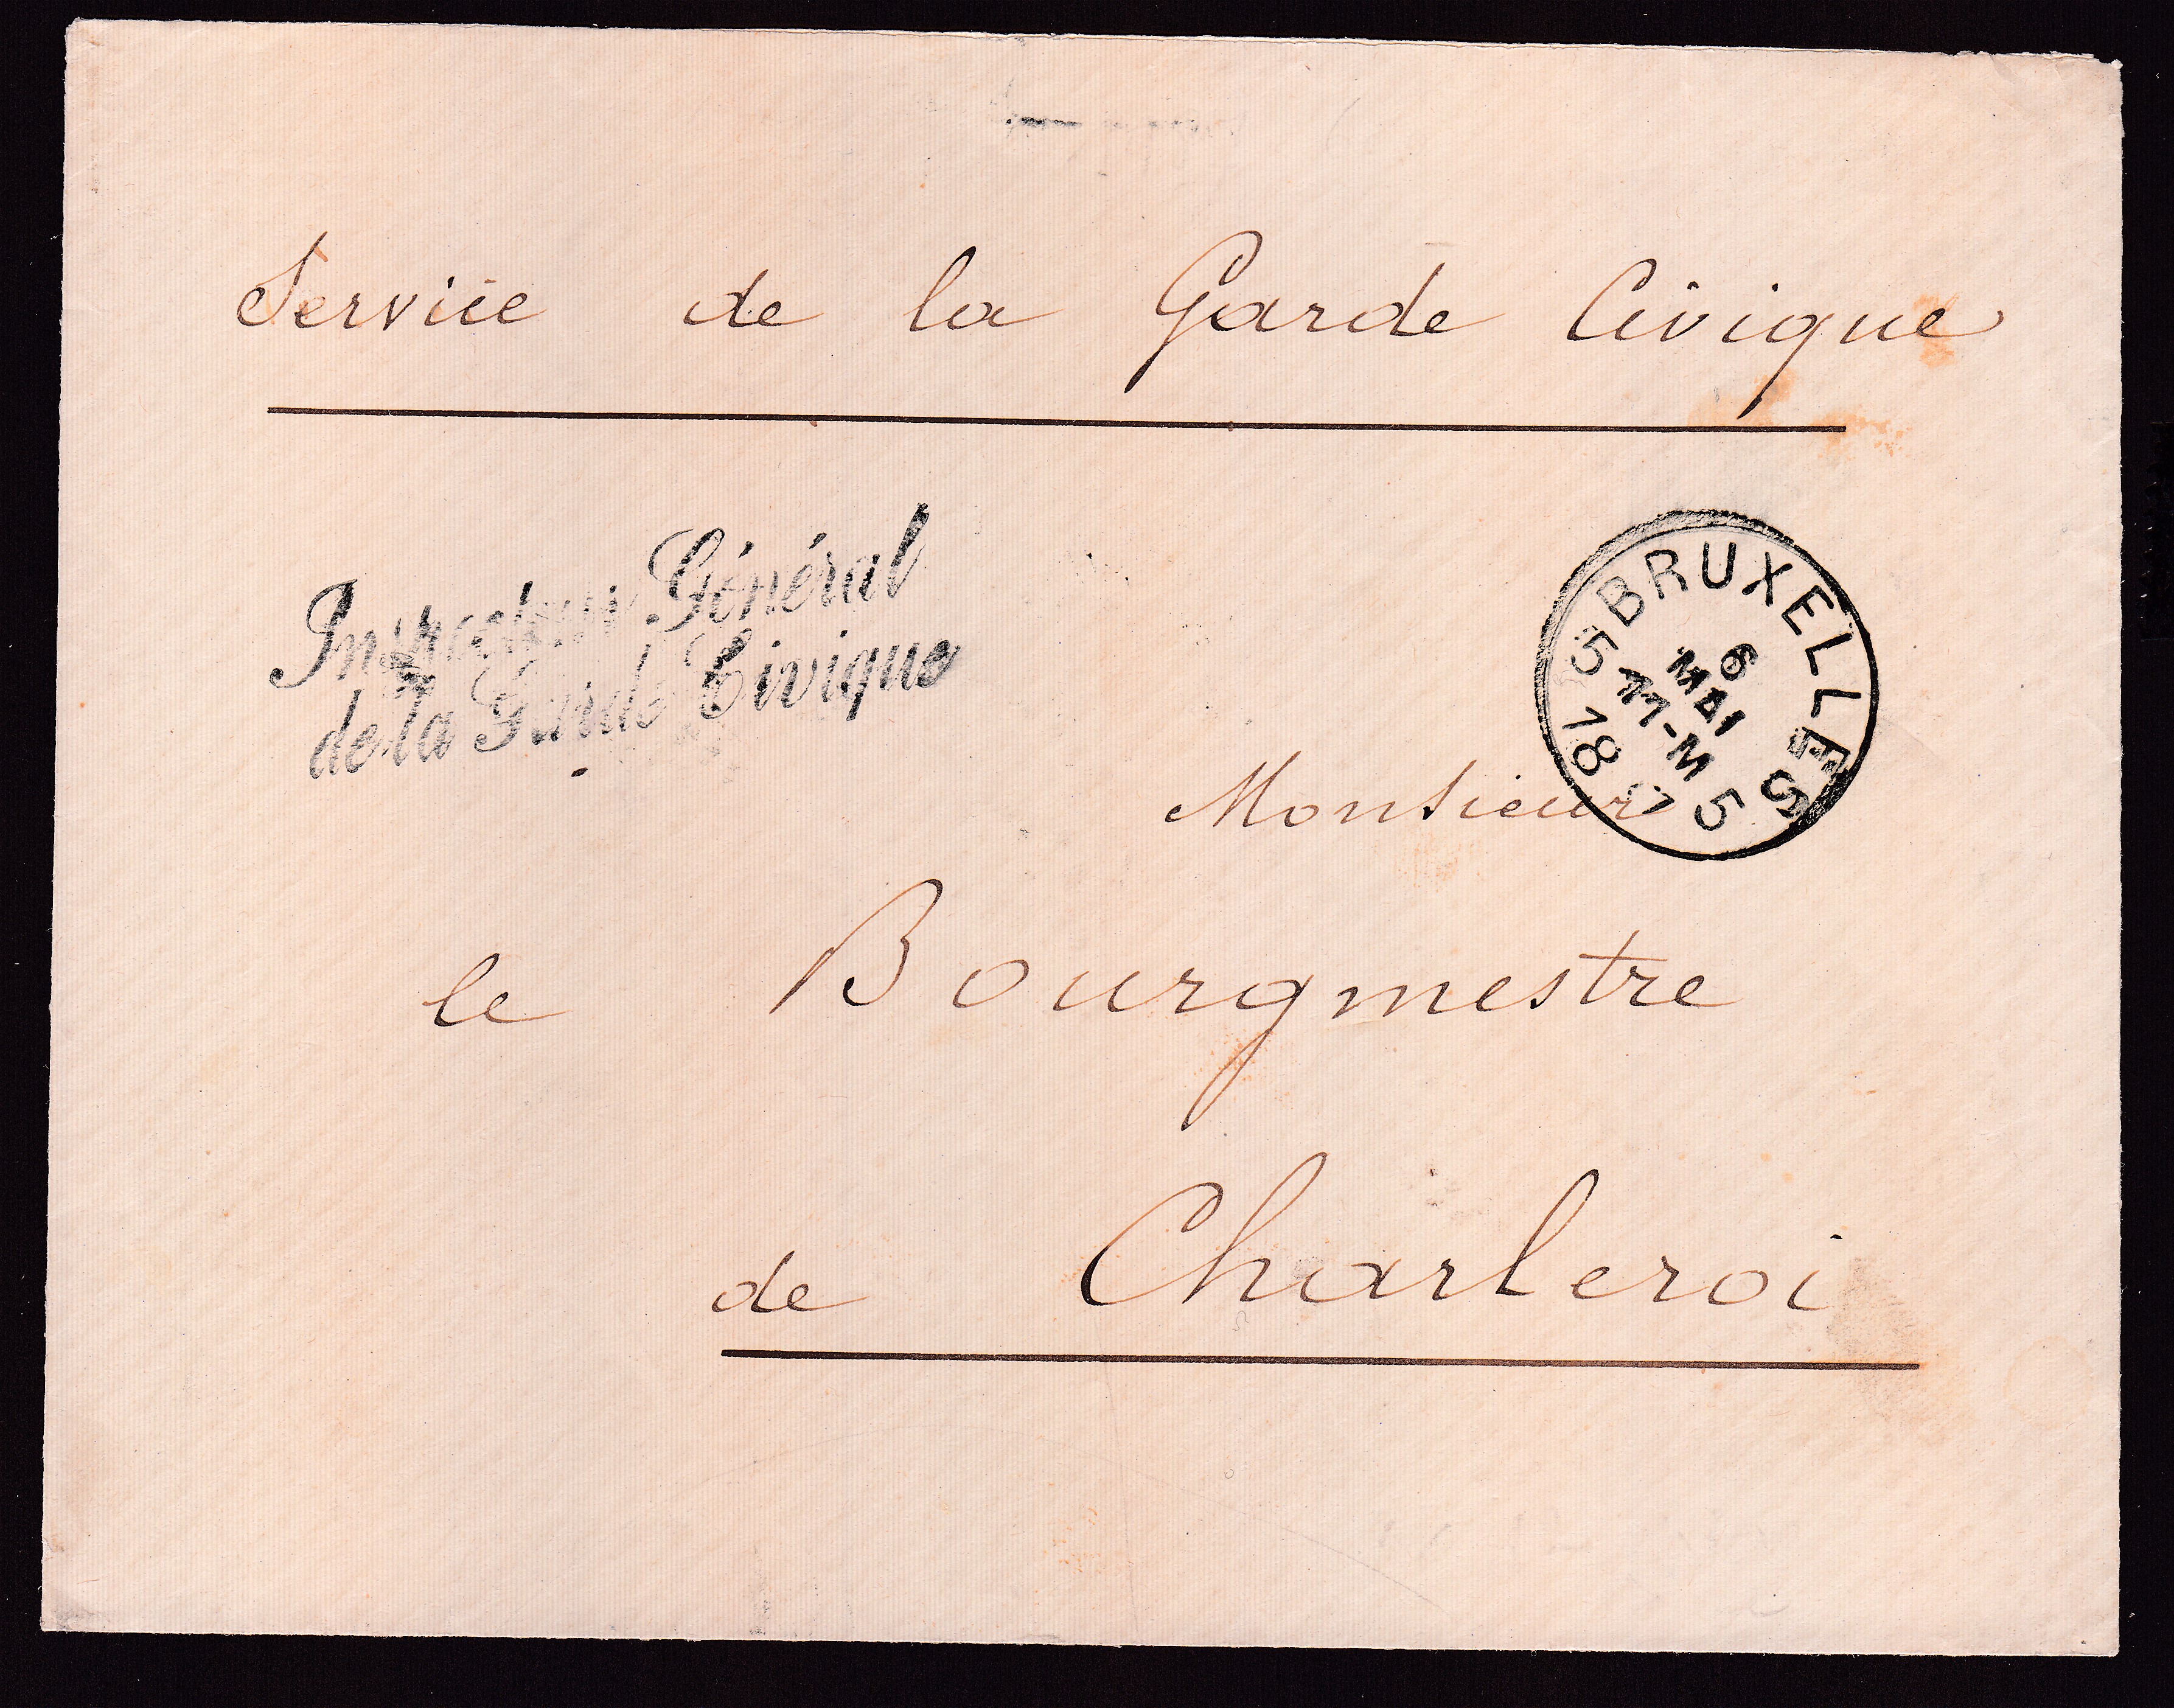 Service de la Garde Civique
Inspecteur Général
de la Garde Civique
BRUXELLES
5
6
MAI
11-M
Monsieur
le Bourgmestre
de Charleroi